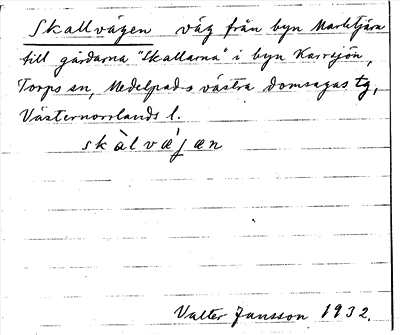 Skallvägen väg från byn Marktjärn
till gårdarna "Skallarna" i byn Karrsjön,
Torps sn, Medelpads västra domsagas tg,
Västernorrlands l.
skàlvæ̀jæn
Valter Jansson 1932.